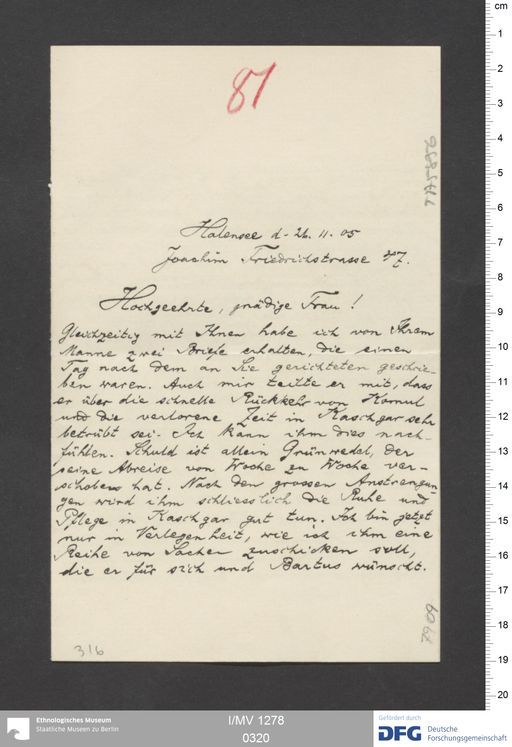 81
TA5856
Halensee d. 26. 11. 05
Joachim Friedrichstrasse 47.
Hochgeehrte, gnädige Frau!
Gleichzeitig mit Ihnen habe ich von Ihrem
Manne zwei Briefe erhalten, die einen
Tag nach dem an Sie gerichteten geschrie-
ben waren. Auch mir teilte er mit, dass
er über die schnelle Rückkehr von Komul
und die verlorene Zeit in Kaschgar sehr
betrübt sei. Ich kann ihm dies nach-
fühlen. Schuld ist allein Grünwedel, der
seine Abreise von Woche zu Woche ver-
schoben hat. Nach den grossen Anstrengun-
gen wird ihm schliesslich die Ruhe und
Pflege in Kaschgar gut tun. Ich bin jetzt
nur in Verlegenheit, wie ich ihm eine
Reihe von Sachen zuschicken soll,
die er für sich und Bartus wünscht.
316
cm
1
2
3
4
5
6
7
8
9
10
11
12
13
14
15
16
17
18
19
20
Ethnologisches Museum
Staatliche Museen zu Berlin
I/MV 1278
0320
Gefördert durch
DFG Deutsche
Forschungsgemeinschaft